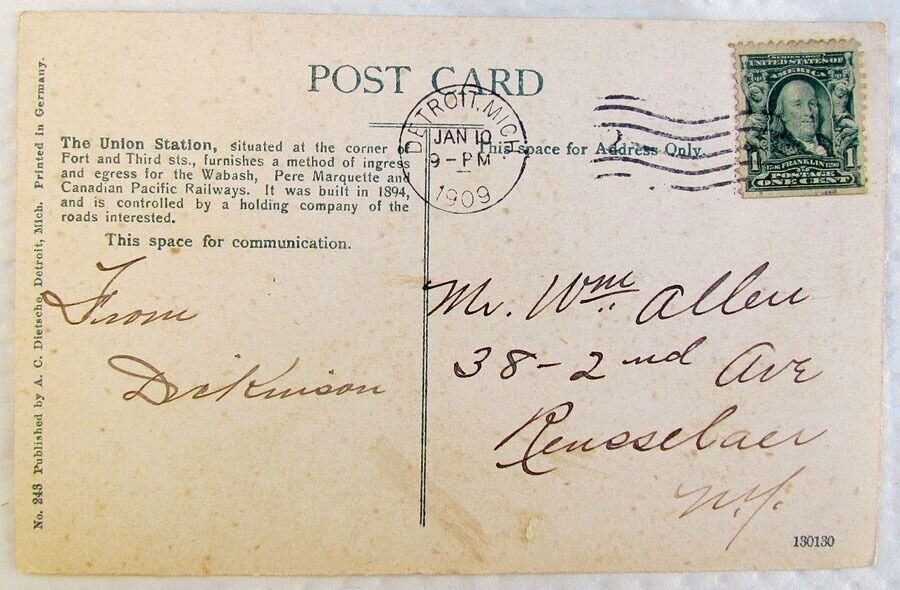 POST CARD
SERIES 1902
UNITED STATES OF
AMERICA
1 FRANKLIN 1
POSTAGE
ONE CENT
DETROIT, MICH.
JAN 10
9-PM
1909
The Union Station, situated at the corner of
Fort and Third sts., furnishes a method of ingress
and egress for the Wabash, Pere Marquette and
Canadian Pacific Railways. It was built in 1894,
and is controlled by a holding company of the
roads interested.
This space for communication.
This space for Address Only.
From
Dickinson
Mr. Wm. Allen
38-2nd Ave
Rensselaer
N.Y.
No. 243 Published by A. C. Dietsche, Detroit, Mich. Printed in Germany.
130130